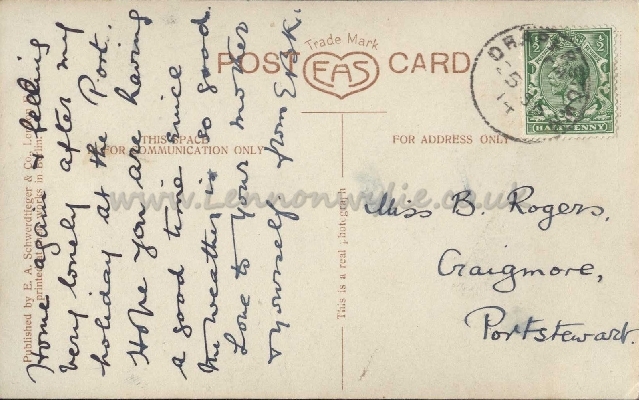 Home again & feeling
very lonely after my
holiday at the Port.
Hope you are having
a good time since
the weather is so good.
Love to your mother
& yourself from
POST CARD
Trade Mark
EAS
THIS SPACE
FOR COMMUNICATION ONLY
FOR ADDRESS ONLY
Miss B. Rogers,
Craigmore,
Portstewart.
Published by E. A. Schwerdtfeger & Co., London
printed at their works in Berlin
This is a real photograph
www.Lennonwylie.co.uk
1/2
1/2
HALFPENNY
14